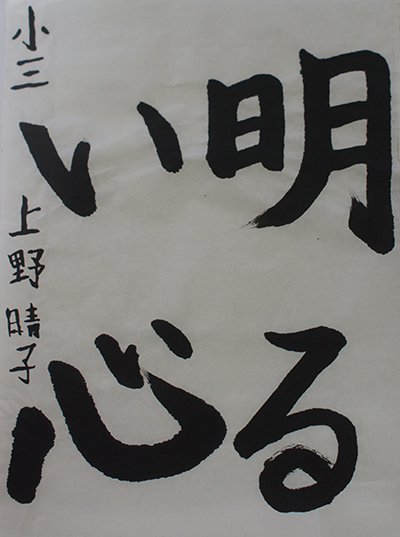 明る
い心
小三 上野晴子